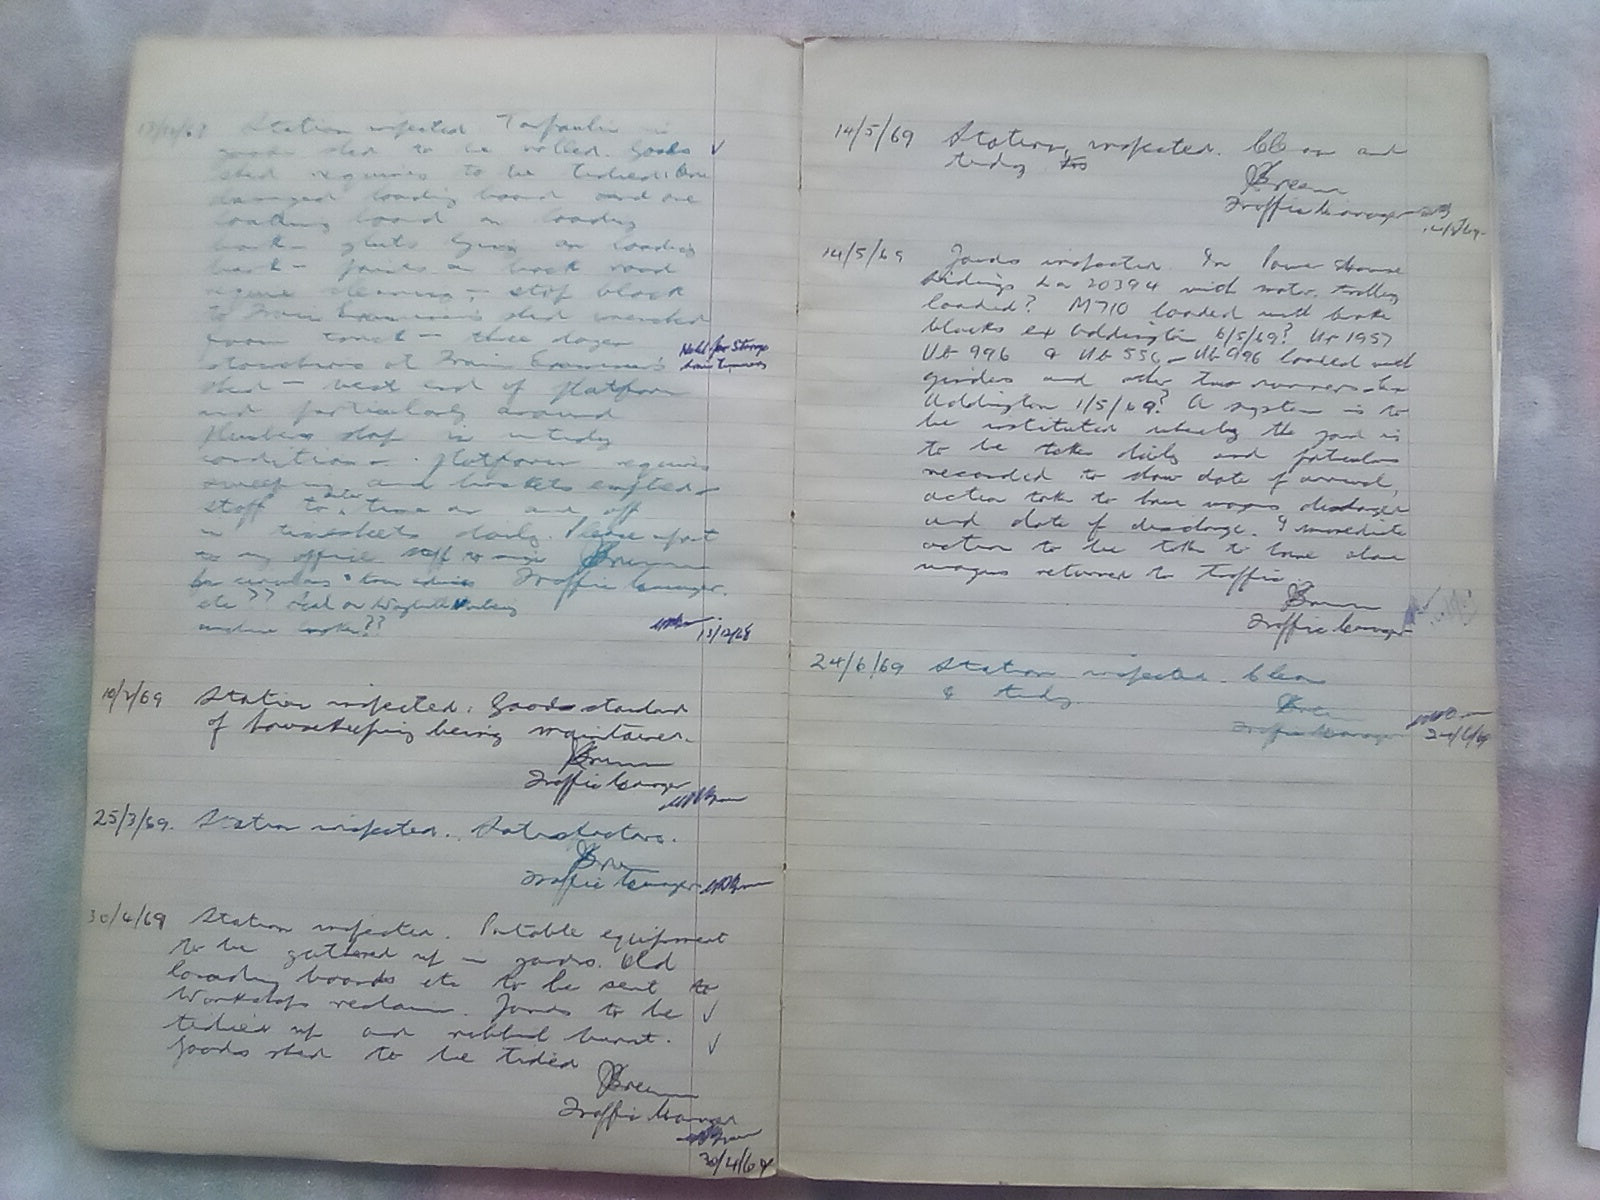 Station inspected. Tarpaulin in
goods shed to be rolled. Goods
shed requires to be tidied: One
damaged loading board and one
loading board on loading
bank - on loading
bank - on back road
require cleaning - stop block
to Train Examiner's shed
from track - three
at Train Examiner's
shed - west end of platform
and particularly around
Plumbers shop is untidy
condition. platform requires
sweeping and baskets emptied
staff to enter time on and off
in timesheets daily. Please report
to my office. staff to sign
for circulars & train advices Traffic Manager.
etc ??
??
13/12/68
10/2/69 Station inspected. Good standard
of housekeeping being maintained.
Traffic Manager
25/3/69. Station inspected. Satisfactory.
Traffic Manager
30/4/69 Station inspected. Portable equipment
to be gathered up in yards. Old
loading boards etc to be sent to
Workshops reclaim. Yards to be
tidied up and rubbish burnt.
Goods shed to be tidied
Traffic Manager
30/4/69
14/5/69 Station inspected. Clean and
tidy
Traffic Manager
14/5/69 Yards inspected. In Power House
Sidings La 20394 with motor trolley
loaded? M710 loaded with brake
blocks ex Addington 6/5/69? Ur 1957
Ub 996 & Ub 556 - Ub 996 loaded with
girders and other two runners ex
Addington 1/5/69? A system is to
be instituted whereby the yard is
to be taken daily and particulars
recorded to show date of arrival,
action taken to have wagons discharged
and date of discharge. Immediate
action to be taken to have above
wagons returned to traffic.
Traffic Manager
24/6/69 Station inspected. Clean
& tidy
Traffic Manager
24/6/69